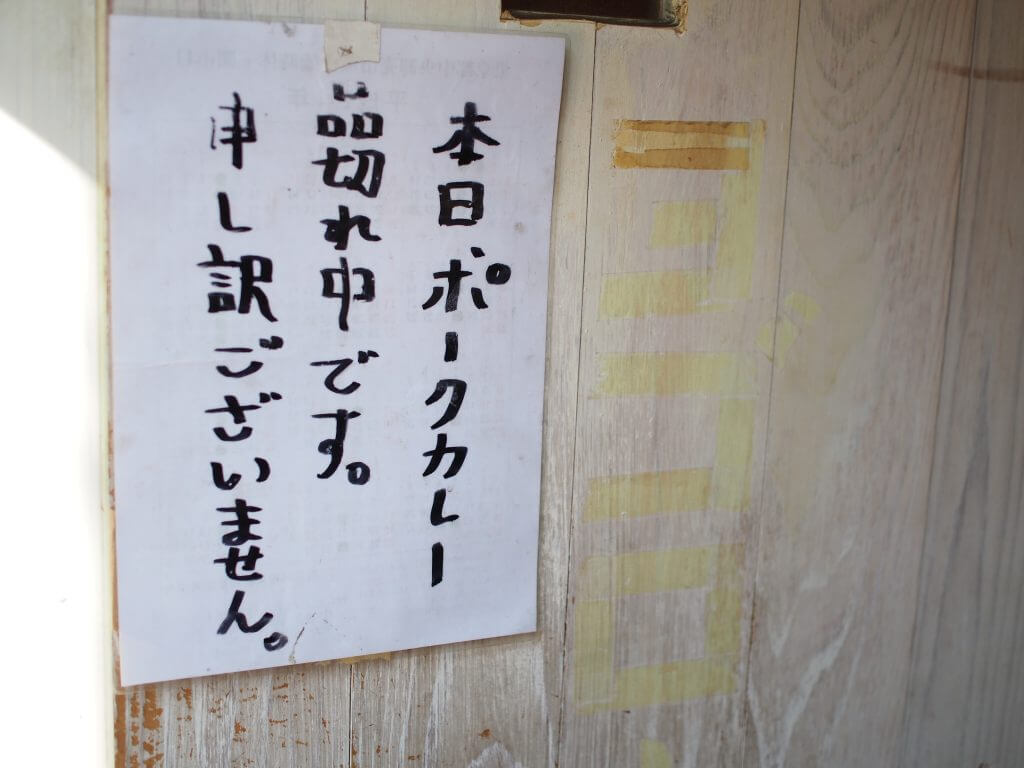 本日、ポークカレー
品切れ中です。
申し訳ございません。